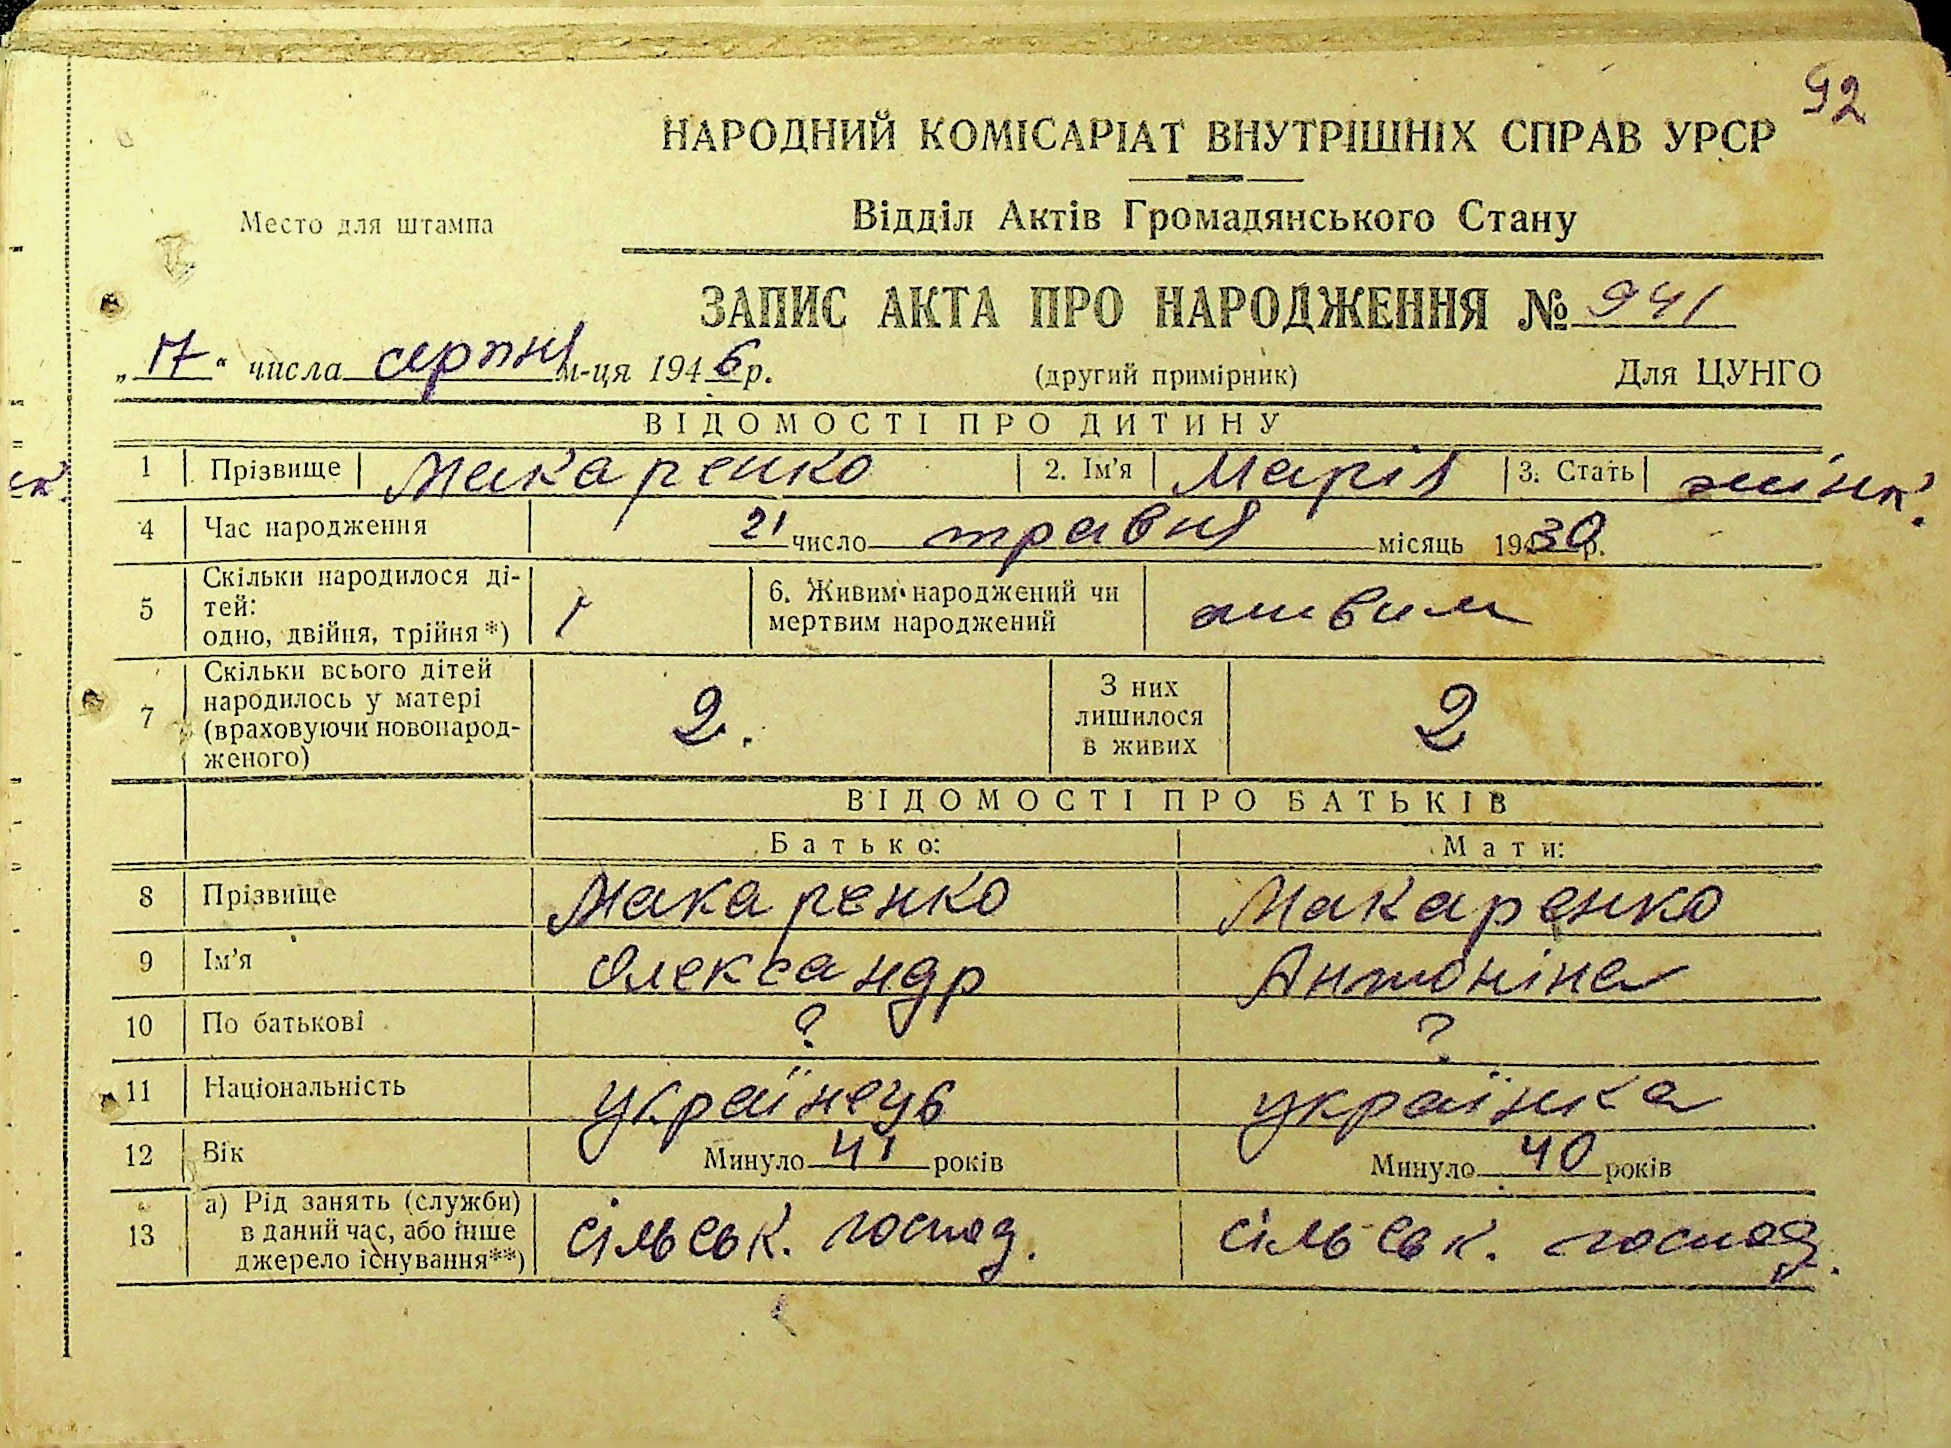 92
НАРОДНИЙ КОМІСАРІАТ ВНУТРІШНІХ СПРАВ УРСР
Место для штампа
Відділ Актів Громадянського Стану
ЗАПИС АКТА ПРО НАРОДЖЕННЯ № 941
„17“ числа серпня м-ця 1946 р. (другий примірник) Для ЦУНГО
ВІДОМОСТІ ПРО ДИТИНУ
1 Прізвище Макаренко 2. Ім'я Марія 3. Стать жінк.
4 Час народження 21 число травня місяць 1930 р.
5 Скільки народилося ді-
тей:
одно, двійня, трійня*) 1 6. Живим народжений чи
мертвим народжений живим
7 Скільки всього дітей
народилось у матері
(враховуючи новонарод-
женого) 2. З них
лишилося
в живих 2
ВІДОМОСТІ ПРО БАТЬКІВ
Батько: Мати:
8 Прізвище Макаренко Макаренко
9 Ім'я Олександр Антоніна
10 По батькові ? ?
11 Національність українець українка
12 Вік Минуло 41 років Минуло 40 років
13 а) Рід занять (служби)
в даний час, або інше
джерело існування**) сільськ. господ. сільськ. господ.